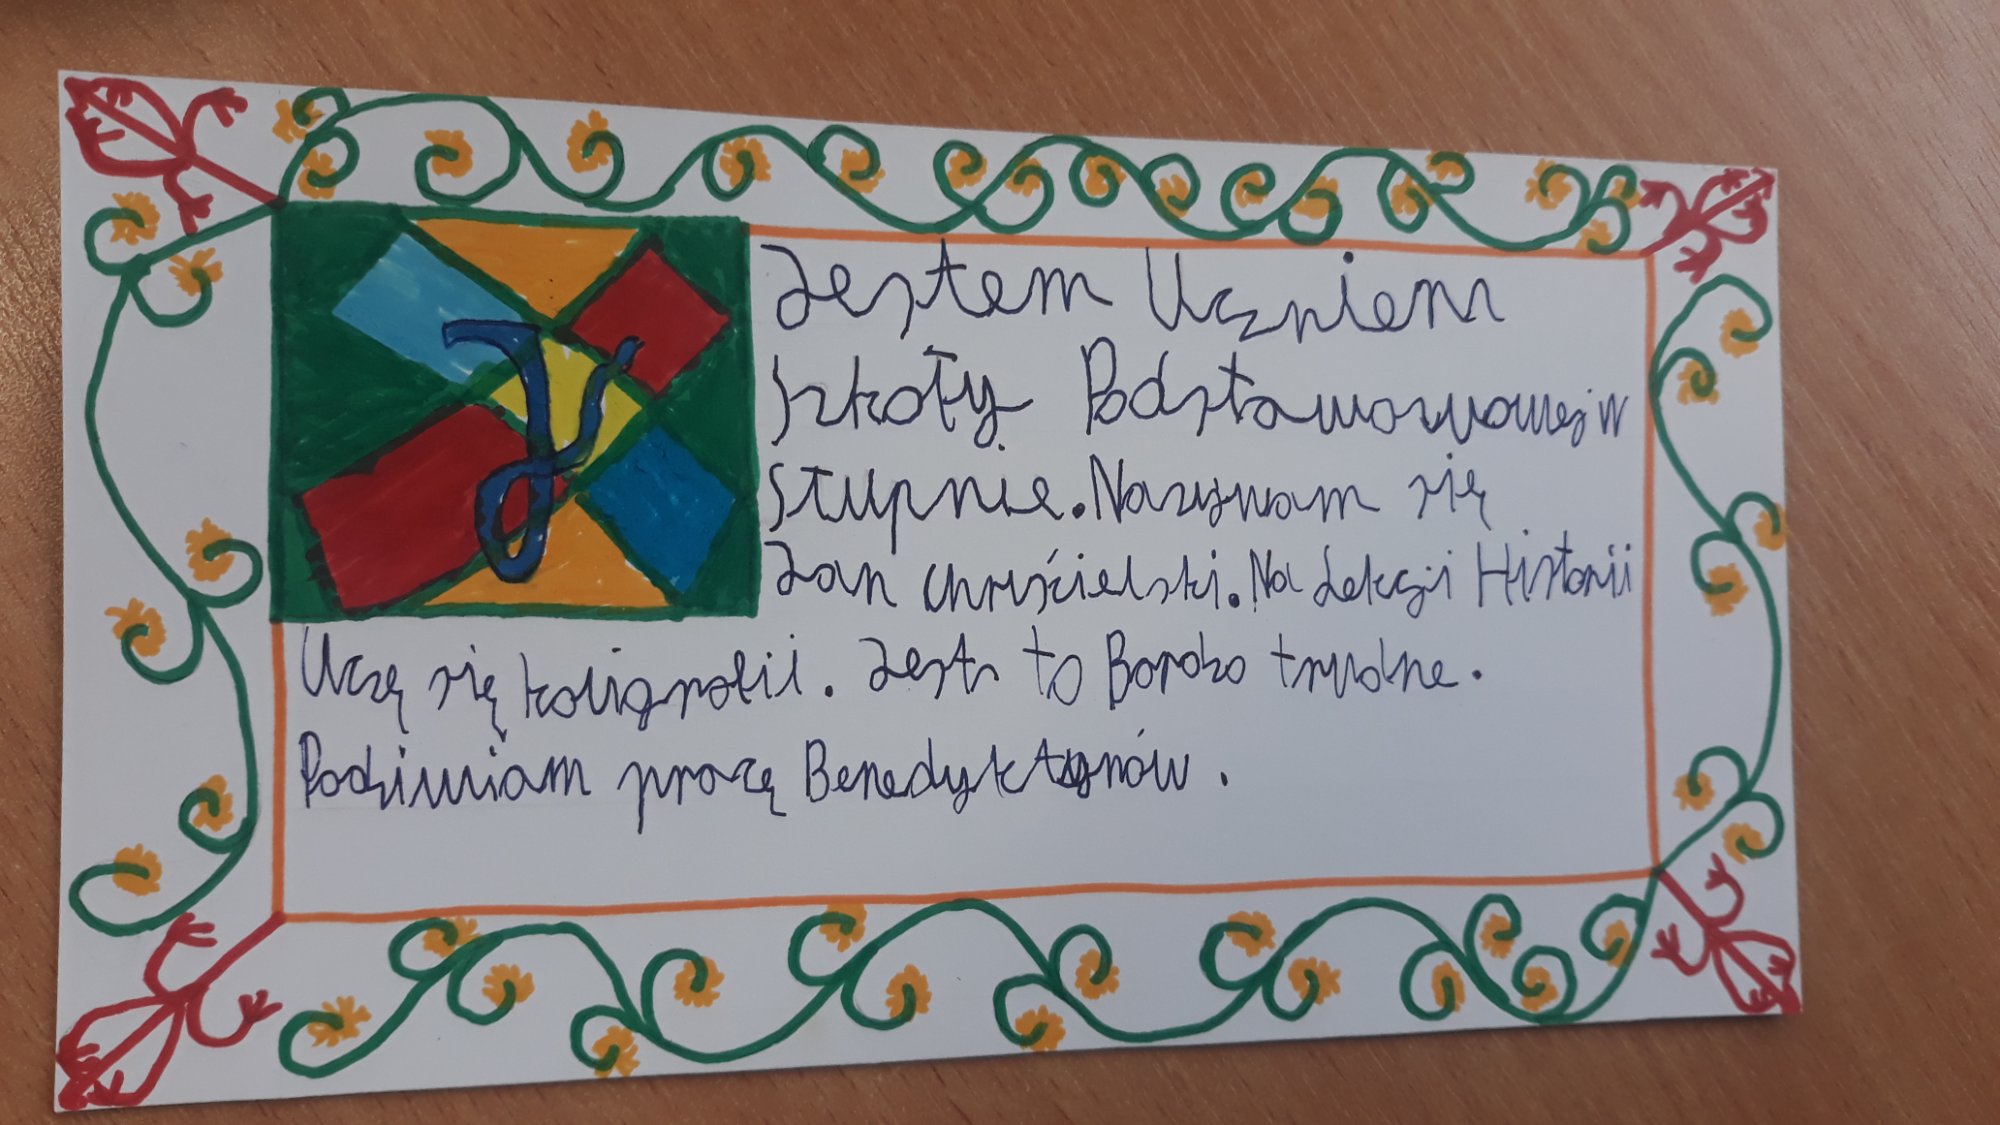 Jestem Uczniem
Szkoły Podstawowowej w
Stupnie. Nazywam się
Jan Chruścielski. Na Lekcji Historii
Uczę się kaligrafii. Jest to Bardzo trudne.
Podziwiam pracę Benedyktynów.